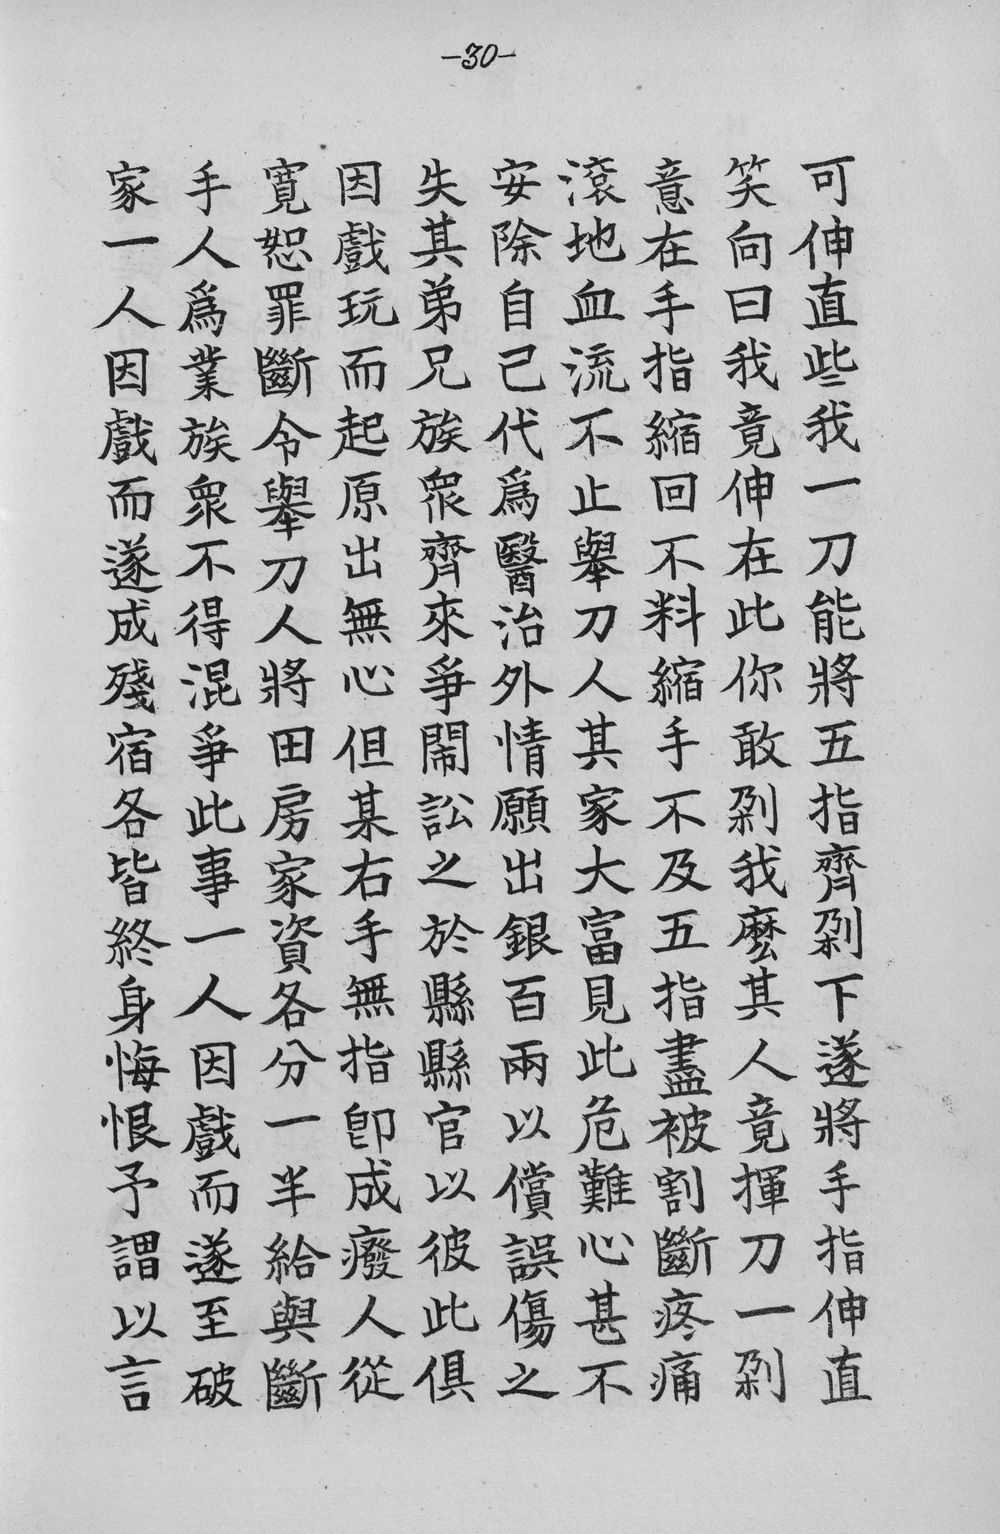 -30-
可伸直些我一刀能將五指齊剁下遂將手指伸直
笑向曰我竟伸在此你敢剁我麼其人竟揮刀一剁
意在手指縮回不料縮手不及五指盡被割斷疼痛
滾地血流不止舉刀人其家大富見此危難心甚不
安除自己代爲醫治外情願出銀百兩以償誤傷之
失其弟兄族衆齊來爭鬧訟之於縣縣官以彼此俱
因戲玩而起原出無心但某右手無指卽成廢人從
寬恕罪斷令舉刀人將田房家資各分一半給與斷
手人爲業族衆不得混爭此事一人因戲而遂至破
家一人因戲而遂成殘宿各皆終身悔恨予謂以言